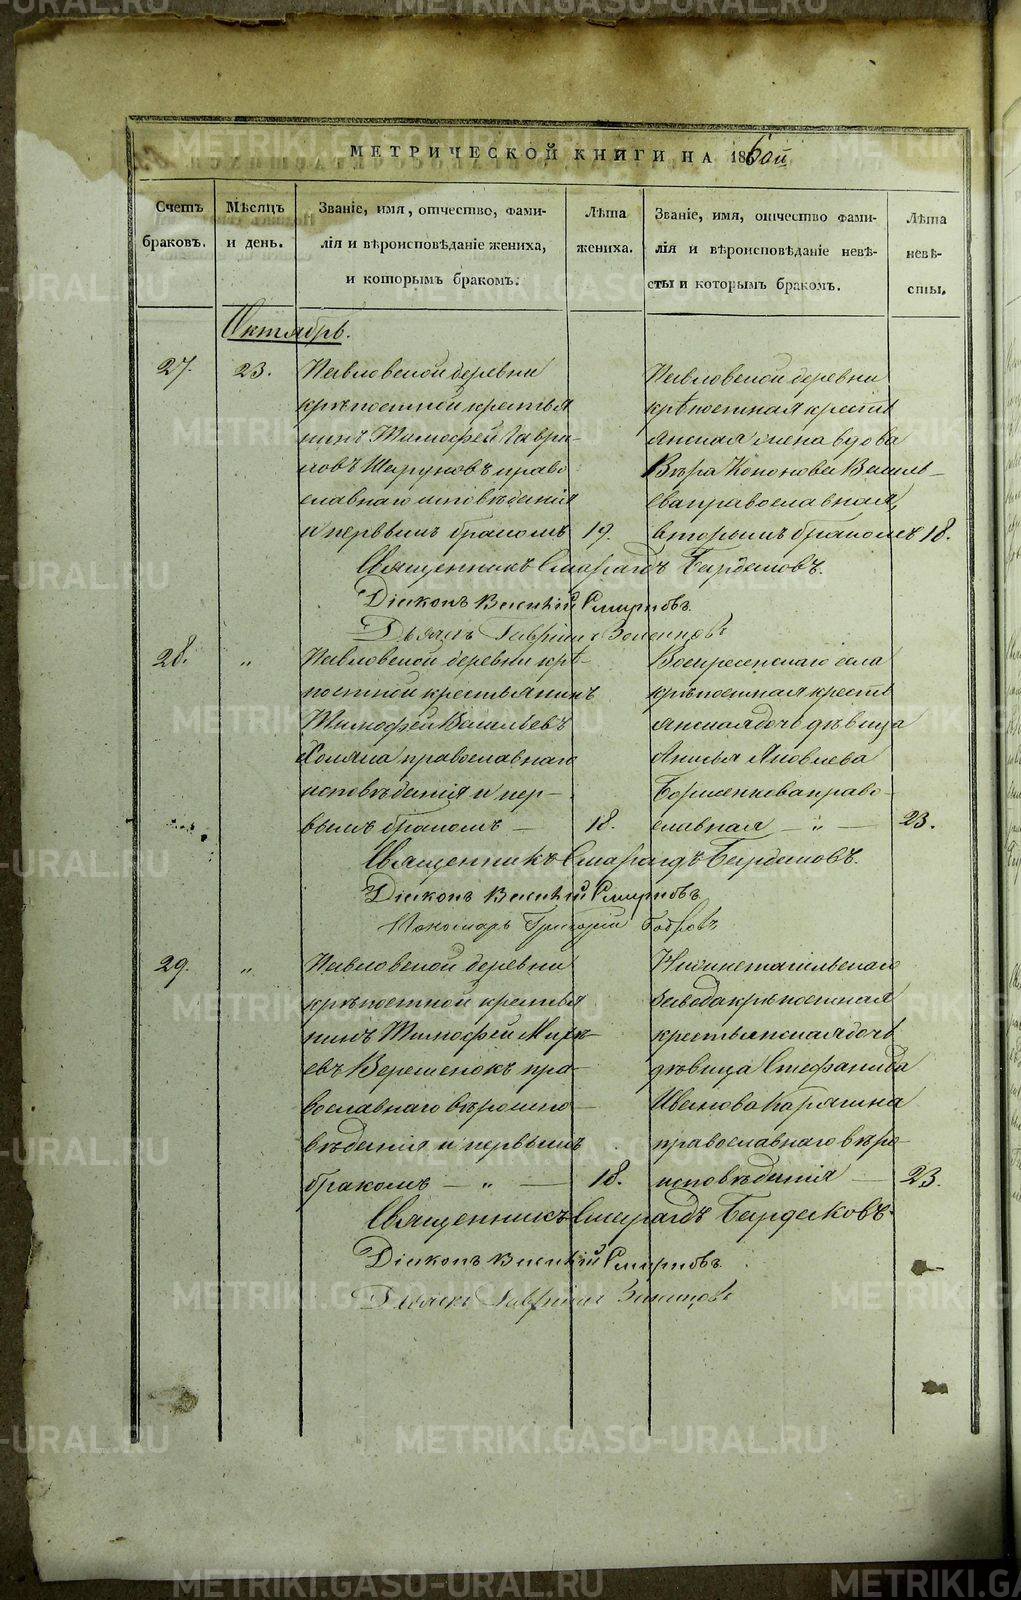 МЕТРИЧЕСКОЙ КНИГИ НА 1860й
Счетъ браковъ.
Мѣсяцъ и день.
Званіе, имя, отчество, фами-
лія и вѣроисповѣданіе жениха,
и которымъ бракомъ.
Лѣта жениха.
Званіе, имя, отчество фами-
лія и вѣроисповѣданіе невѣ-
сты и которымъ бракомъ.
Лѣта невѣ-
сты.
Октябрь.
27.
23.
Павловской деревни
крѣпостной крестья
нинъ Тимофей Гаври
ловъ Шаруновъ право
славнаго исповѣданія
и первымъ бракомъ
19.
Павловской деревни
крѣпостная крестья
янская жена вдова
Вѣра Кононова Василь-
ева православная,
вторымъ бракомъ
18.
Священникъ Смарагдъ Бирдюковъ.
Діаконъ Василій Смирновъ
Дьячекъ Гавріилъ
28.
"
Павловской деревни крѣ-
постной крестьянинъ
Тимофей Васильевъ
Холяка православнаго
исповѣданія и пер-
вымъ бракомъ —
18.
Воскресенскаго села
крѣпостная кресть
янская дочь дѣвица
Анисья Яковлева
право-
славная — " —
23.
Священникъ Смарагдъ Бирдюковъ.
Діаконъ Василій Смирновъ.
Пономарь Григорій Бобровъ
29.
"
Павловской деревни
крѣпостной крестья
нинъ Тимофей Мирѣ-
евъ Верещенокъ пра-
вославнаго вѣроиспо-
вѣданія и первымъ
бракомъ — " —
18.
Нижнетагильскаго
завода крѣпостная
крестьянская дочь
дѣвица Стефанида
Иванова Карягина
православнаго вѣро-
исповѣданія —
23.
Священникъ Смарагдъ Бирдюковъ.
Діаконъ Василій Смирновъ.
Дьячекъ Гавріилъ
METRIKI.GASO-URAL.RU